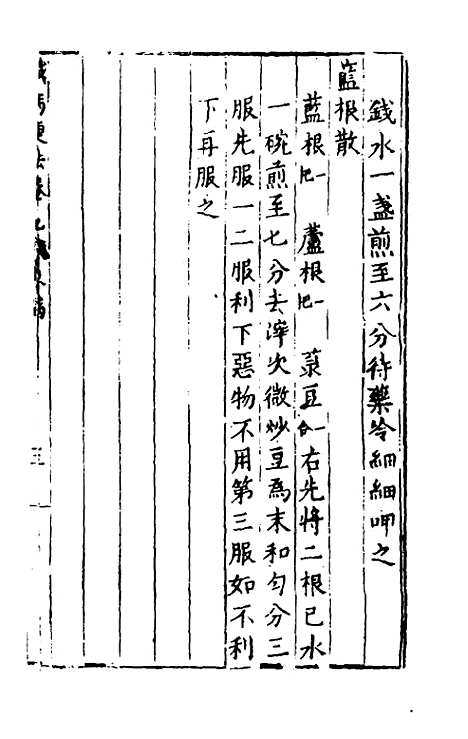 錢水一盞煎至六分待藥冷細細呷之
藍根散
藍根一把 蘆根一把 菉豆一合 右先將二根已水
一碗煎至七分去滓次微炒豆為末和勻分三
服先服一二服利下惡物不用第三服如不利
下再服之
便法卷
三